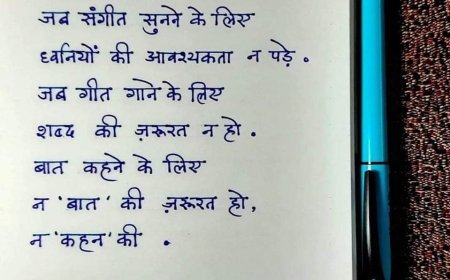 जब संगीत सुनने के लिए
ध्वनियों की आवश्यकता न पड़े .
जब गीत गाने के लिए
शब्द की ज़रूरत न हो .
बात कहने के लिए
न 'बात' की ज़रूरत हो,
न 'कहन' की .